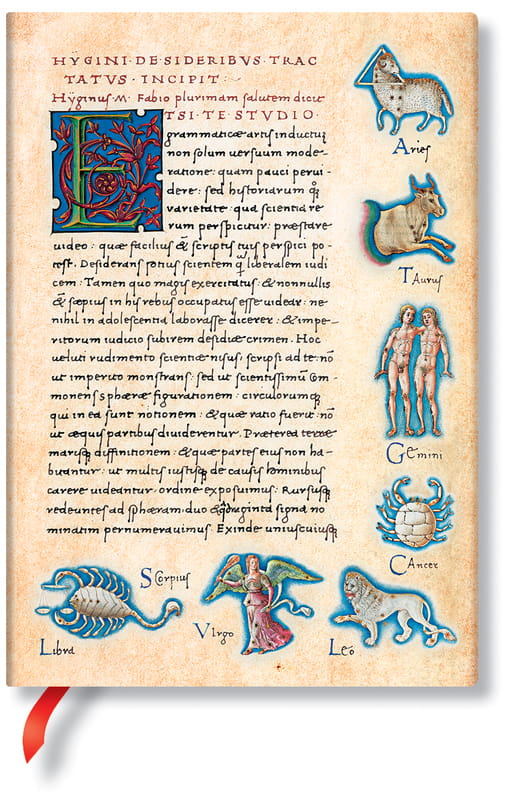 HŸGINI · DE SIDERIBVS · TRAC
TATVS · INCIPIT :~
Hÿginus · M · Fabio plurimam salutem dicit
ETSI · TE STVDIO ·
grammaticæ artis inductuʒ
non solum versuum mode-
ratione : quam pauci pervi-
dere : sed historiarum qꝫ
varietate : qua scientia re-
rum perspicitur : præstare
video : quæ facilius & scriptis tuis perspici po-
test . Desiderans potius scientem ꝙ liberalem iudi
cem : Tamen quo magis exercitatus : & nonnullis
& sæpius in his rebus occupatus esse videar : ne
nihil in adolescentia laborasse dicerer : & impe-
ritorum iudicio subirem desidiæ crimen . Hoc
veluti rudimento scientiæ nisus, scripsi ad te : nō
ut imperito monstrans : sed ut scientissimū com
monens sphæræ figurationem : circulorumqꝫ
qui in ea sunt notionem : & quæ ratio fuerit : nō
ut æquis partibus dividerentur . Præterea terræ
marisqꝫ diffinitionem : & quæ partes eius non ha-
bitantur : ut multis iustisqꝫ de causis hominibus
carere videantur ordine exposuimus : Rursusqꝫ
redeuntes ad sphæram duo & quadraginta signa no
minatim pernumeravimus . Exinde uniuscuiusqꝫ
Aries
Taurus
Gemini
Cancer
Leo
Virgo
Scorpius
Libra